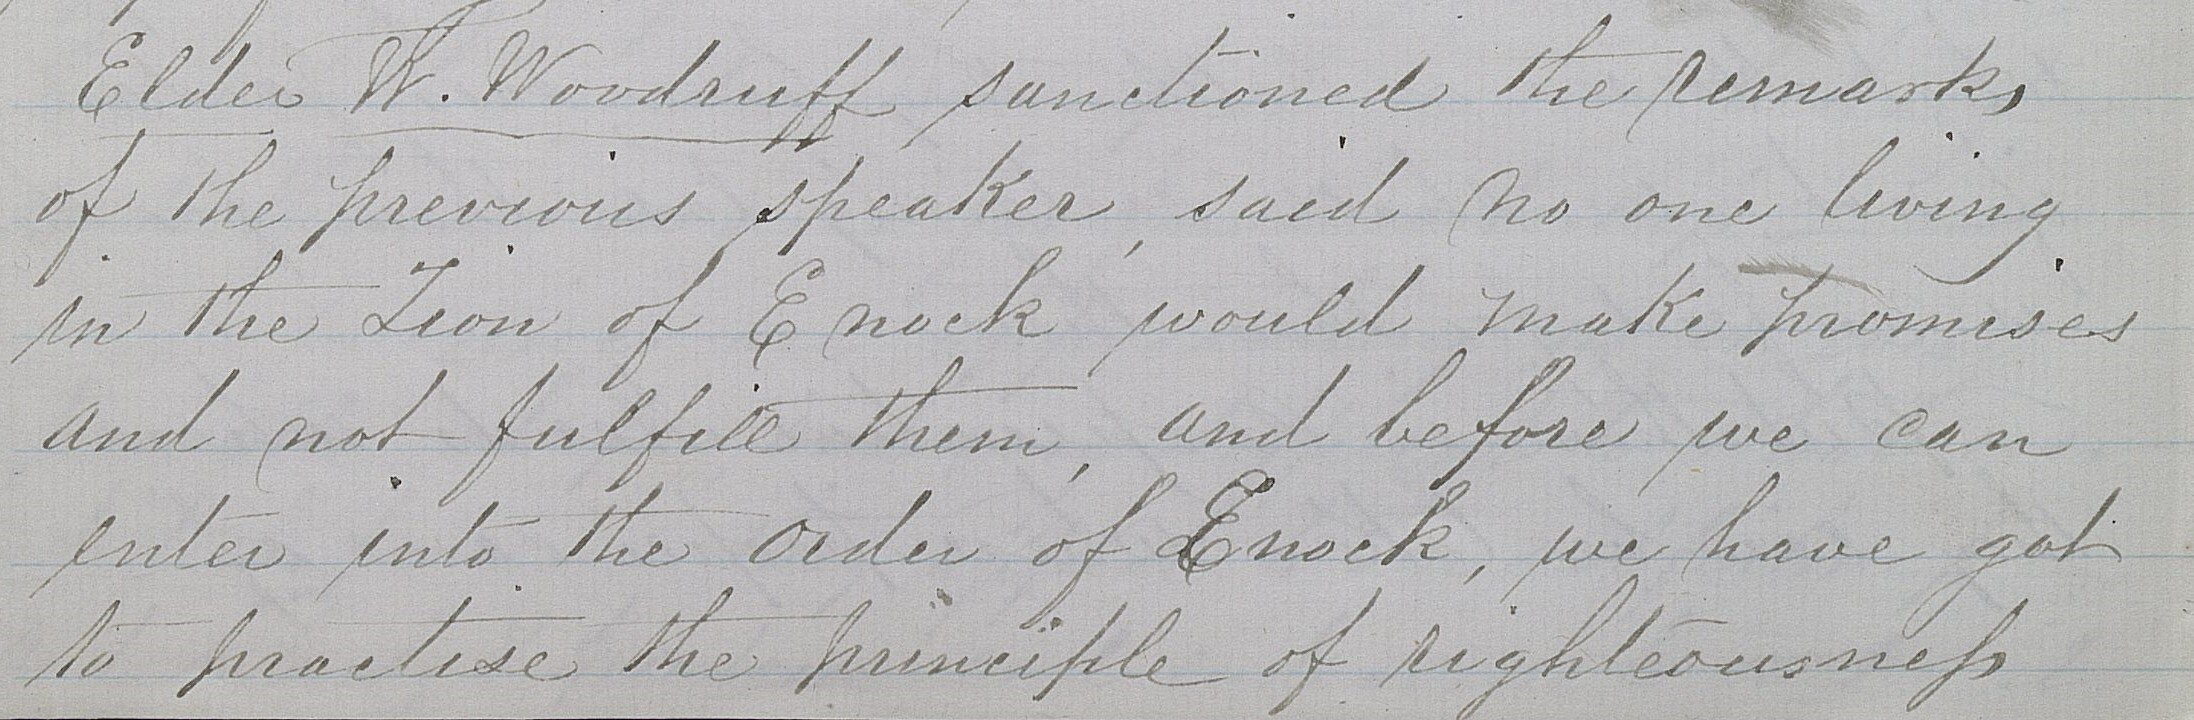 Elder W. Woodruff sanctioned the remarks
of the previous speaker, said no one living
in the Zion of Enock would make promises
and not fulfill them, and before we can
enter into the Order of Enock, we have got
to practise the principle of righteousness